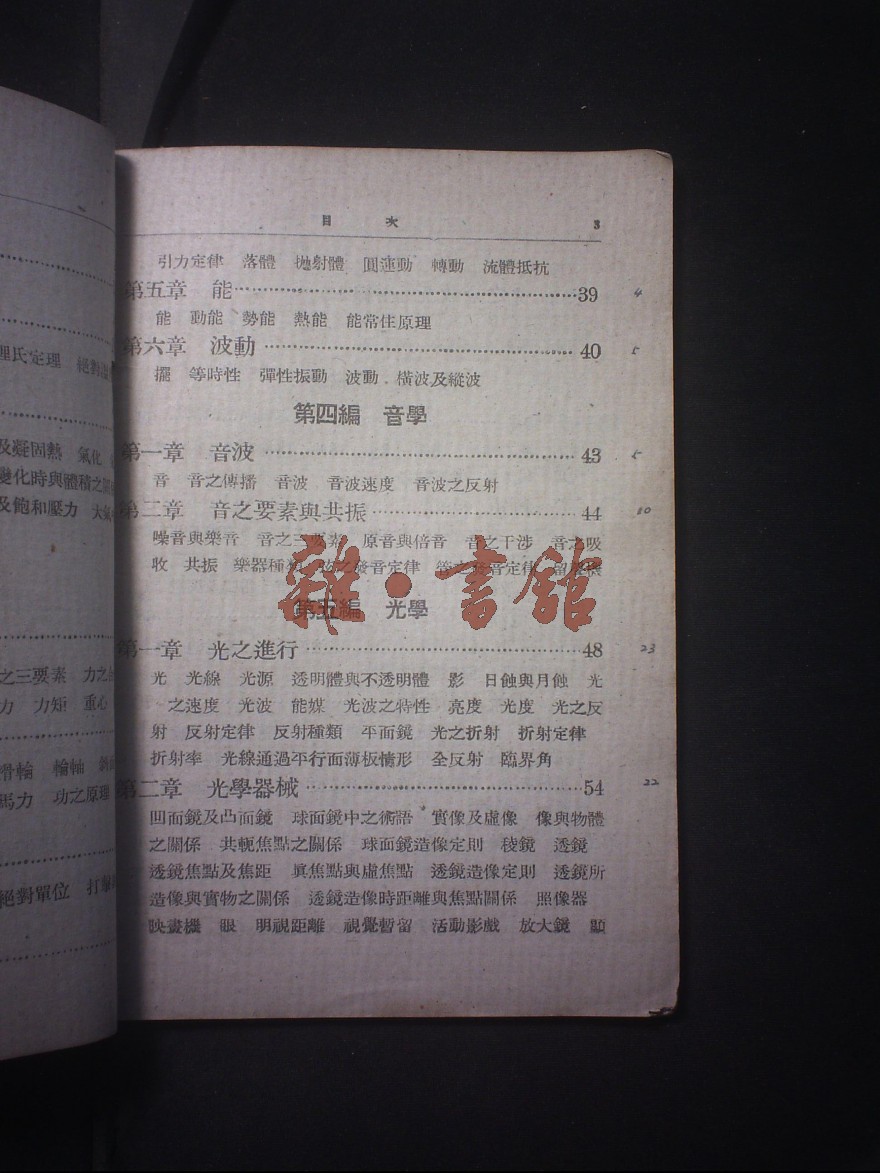 理氏定理
及凝固熱 氣化
變化時與體積之關
及飽和壓力 大氣
之三要素 力之
力 力矩 重心
滑輪 輪軸
馬力 功之原理
絕對單位 打擊
目 次 3
引力定律 落體 拋射體 圓運動 轉動 流體抵抗
第五章 能 39 4
能 動能 勢能 熱能 能常住原理
第六章 波動 40 5
擺 等時性 彈性振動 波動 橫波及縱波
第四編 音學
第一章 音波 43 5
音 音之傳播 音波 音波速度 音波之反射
第二章 音之要素與共振 44 10
噪音與樂音 音之三要素 原音與倍音 音之干涉 音之吸
收 共振 樂器種類 弦之發音定律 管之發音定律 留聲機
雜·書館
第五編 光學
第一章 光之進行 48 23
光 光線 光源 透明體與不透明體 影 日蝕與月蝕 光
之速度 光波 能媒 光波之特性 亮度 光度 光之反
射 反射定律 反射種類 平面鏡 光之折射 折射定律
折射率 光線通過平行面薄板情形 全反射 臨界角
第二章 光學器械 54 22
凹面鏡及凸面鏡 球面鏡中之術語 實像及虛像 像與物體
之關係 共軛焦點之關係 球面鏡造像定則 稜鏡 透鏡
透鏡焦點及焦距 眞焦點與虛焦點 透鏡造像定則 透鏡所
造像與實物之關係 透鏡造像時距離與焦點關係 照像器
映畫機 眼 明視距離 視覺暫留 活動影戲 放大鏡 顯